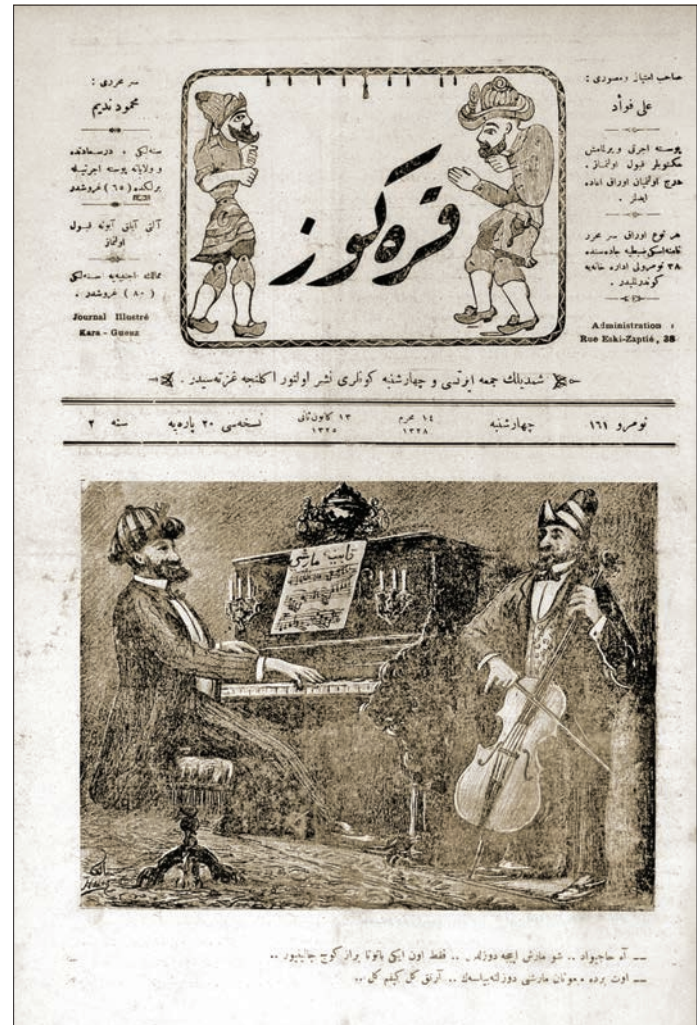 صاحب امتیاز و مصوری :
علی فؤاد
پوسته اجرتی ویرلمامش
مکتوبلر قبول اولنماز .
درج اولنمیان اوراق اعاده
ایدلمز .
هر نوع اوراق سر محرر
نامنه اسکی ضبطیه جاده‌سنده
٣٨ نومرولی اداره خانه‌یه
کوندرلیدر .
Administration :
Rue Eski-Zaptié, 38
قره کوز
سر محرری :
محمود ندیم
سنه‌لکی ، درسعادتده
و ولایاته پوسته اجرتیله
برلکده (٦٥) غروشدر
آلتی آیلق آبونه قبول
اولنماز
ممالک اجنبیه‌یه سنه‌لکی
(٨٠) غروشدر .
Journal Illustré
Kara - Gueuz
شمدیلك جمعه ایرتسی و چهارشنبه کونلری نشر اولنور اکلنجه غزته‌سیدر .
نومرو ١٦١
چهارشنبه
١٤ محرم ١٣٢٨
١٣ کانون ثانی ١٣٢٥
نسخه‌سی ٢٠ پاره‌یه
سنه ٢
مارشی
— آه حاجیواد .. شو مارش ایجه دوزلدی .. فقط اون ایکی باتوتا براز کوچ چالینیور ..
— اوت برده مبعوثان مارشی دوزلته‌بیلسه‌ك .. آرتق کل کیفم کل ..